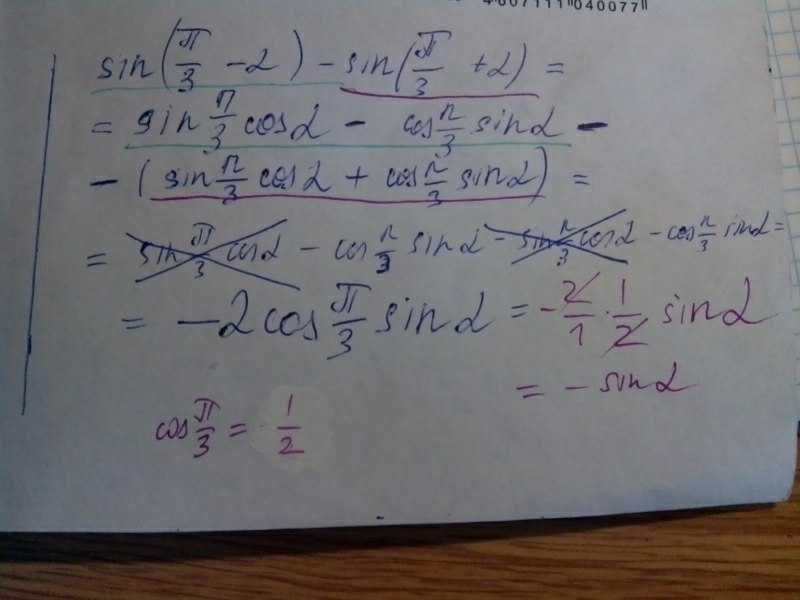 4607111 040077
sin(π/3 - α) - sin(π/3 + α) =
= sin π/3 cos α - cos π/3 sin α -
- (sin π/3 cos α + cos π/3 sin α) =
= sin π/3 cos α - cos π/3 sin α - sin π/3 cos α - cos π/3 sin α =
= -2 cos π/3 sin α = -2/1 · 1/2 sin α
= - sin α
cos π/3 = 1/2